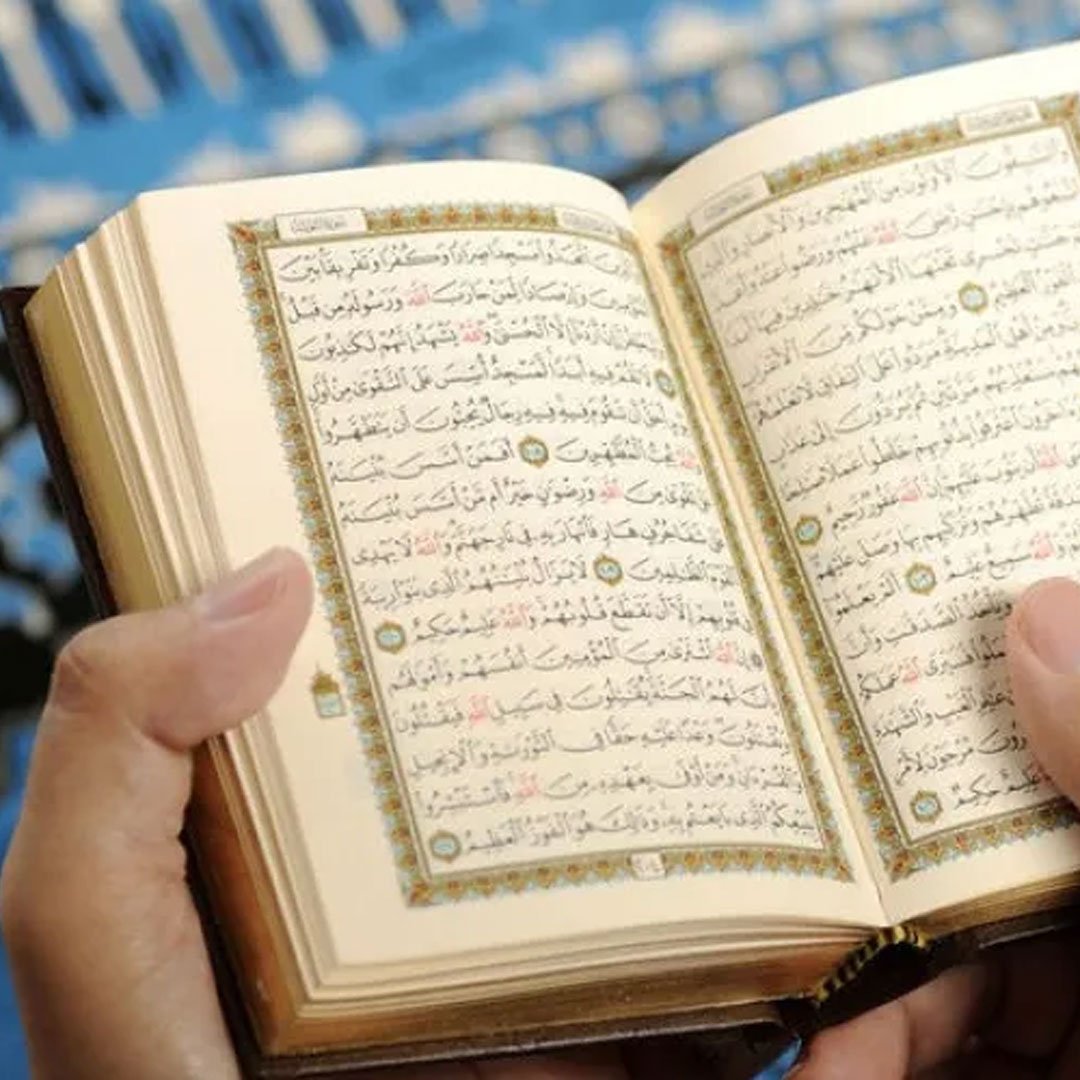 وَٱلسَّٰبِقُونَ ٱلْأَوَّلُونَ مِنَ ٱلْمُهَٰجِرِينَ وَٱلْأَنصَارِ وَٱلَّذِينَ
ٱتَّبَعُوهُم بِإِحْسَٰنٍ رَّضِىَ ٱللَّهُ عَنْهُمْ وَرَضُوا۟ عَنْهُ وَأَعَدَّ
جَنَّٰتٍ تَجْرِى تَحْتَهَا ٱلْأَنْهَٰرُ خَٰلِدِينَ فِيهَآ أَبَدًا
ٱلْفَوْزُ ٱلْعَظِيمُ ١٠٠ وَمِمَّنْ حَوْلَكُم مِّنَ ٱلْأَعْرَابِ
وَمِنْ أَهْلِ ٱلْمَدِينَةِ مَرَدُوا۟ عَلَى ٱلنِّفَاقِ لَا تَعْلَمُهُمْ
سَنُعَذِّبُهُم مَّرَّتَيْنِ ثُمَّ يُرَدُّونَ إِلَىٰ عَذَابٍ
وَءَاخَرُونَ ٱعْتَرَفُوا۟ بِذُنُوبِهِمْ خَلَطُوا۟ عَمَلًا صَٰلِحًا
عَسَى ٱللَّهُ أَن يَتُوبَ عَلَيْهِمْ إِنَّ ٱللَّهَ غَفُورٌ رَّحِيمٌ ١٠٢
صَدَقَةً تُطَهِّرُهُمْ وَتُزَكِّيهِم بِهَا وَصَلِّ عَلَيْهِمْ
وَٱللَّهُ سَمِيعٌ عَلِيمٌ ١٠٣ أَلَمْ يَعْلَمُوٓا۟
وَيَأْخُذُ ٱلصَّدَقَٰتِ وَأَنَّ
ٱعْمَلُوا۟ فَسَيَرَى ٱللَّهُ عَمَلَكُمْ
عَٰلِمِ ٱلْغَيْبِ وَٱلشَّهَٰدَةِ
وَءَاخَرُونَ مُرْجَوْنَ لِأَمْرِ
عَلِيمٌ حَكِيمٌ ١٠٦
ٱتَّخَذُوا۟ مَسْجِدًا ضِرَارًا وَكُفْرًا وَتَفْرِيقًۢا بَيْنَ
ٱلْمُؤْمِنِينَ وَإِرْصَادًا لِّمَنْ حَارَبَ ٱللَّهَ وَرَسُولَهُۥ مِن قَبْلُ
وَلَيَحْلِفُنَّ إِنْ أَرَدْنَآ إِلَّا ٱلْحُسْنَىٰ وَٱللَّهُ يَشْهَدُ إِنَّهُمْ لَكَٰذِبُونَ
١٠٧ لَا تَقُمْ فِيهِ أَبَدًا لَّمَسْجِدٌ أُسِّسَ عَلَى ٱلتَّقْوَىٰ مِنْ أَوَّلِ
أَحَقُّ أَن تَقُومَ فِيهِ فِيهِ رِجَالٌ يُحِبُّونَ أَن يَتَطَهَّرُوا۟
وَٱللَّهُ يُحِبُّ ٱلْمُطَّهِّرِينَ ١٠٨ أَفَمَنْ أَسَّسَ بُنْيَٰنَهُۥ
عَلَىٰ تَقْوَىٰ مِنَ ٱللَّهِ وَرِضْوَٰنٍ خَيْرٌ أَم مَّنْ أَسَّسَ بُنْيَٰنَهُۥ
عَلَىٰ شَفَا جُرُفٍ هَارٍ فَٱنْهَارَ بِهِۦ فِى نَارِ جَهَنَّمَ وَٱللَّهُ لَا يَهْدِى
ٱلْقَوْمَ ٱلظَّٰلِمِينَ ١٠٩ لَا يَزَالُ بُنْيَٰنُهُمُ ٱلَّذِى بَنَوْا۟ رِيبَةً
فِى قُلُوبِهِمْ إِلَّآ أَن تَقَطَّعَ قُلُوبُهُمْ وَٱللَّهُ عَلِيمٌ حَكِيمٌ ١١٠
إِنَّ ٱللَّهَ ٱشْتَرَىٰ مِنَ ٱلْمُؤْمِنِينَ أَنفُسَهُمْ وَأَمْوَٰلَهُم
بِأَنَّ لَهُمُ ٱلْجَنَّةَ يُقَٰتِلُونَ فِى سَبِيلِ ٱللَّهِ فَيَقْتُلُونَ
وَيُقْتَلُونَ وَعْدًا عَلَيْهِ حَقًّا فِى ٱلتَّوْرَىٰةِ وَٱلْإِنجِيلِ
وَٱلْقُرْءَانِ وَمَنْ أَوْفَىٰ بِعَهْدِهِۦ مِنَ ٱللَّهِ فَٱسْتَبْشِرُوا۟
بِبَيْعِكُمُ ٱلَّذِى بَايَعْتُم بِهِۦ وَذَٰلِكَ هُوَ ٱلْفَوْزُ ٱلْعَظِيمُ ١١١